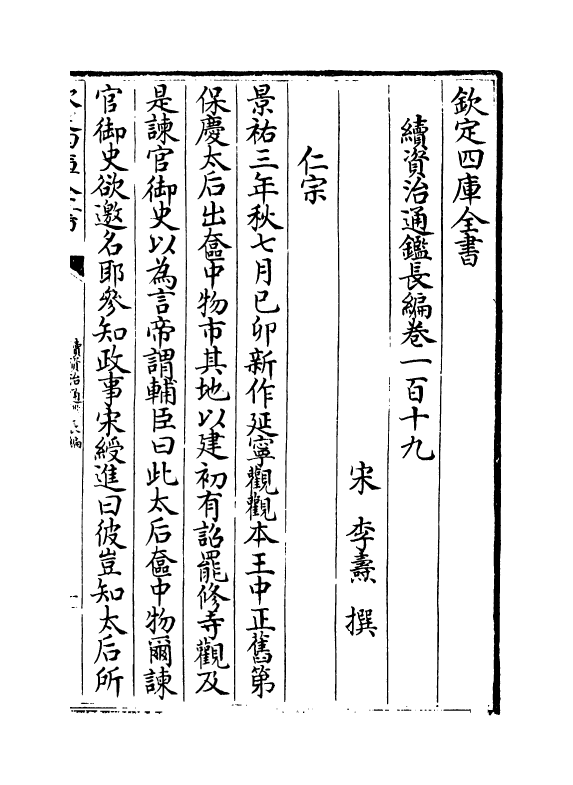 欽定四庫全書
續資治通鑑長編卷一百十九
宋 李燾 撰
仁宗
景祐三年秋七月己卯新作延寧觀觀本王中正舊第
保慶太后出奩中物市其地以建初有詔罷修寺觀及
是諫官御史以為言帝謂輔臣曰此太后奩中物爾諫
官御史欲邀名耶參知政事宋綬進曰彼豈知太后所